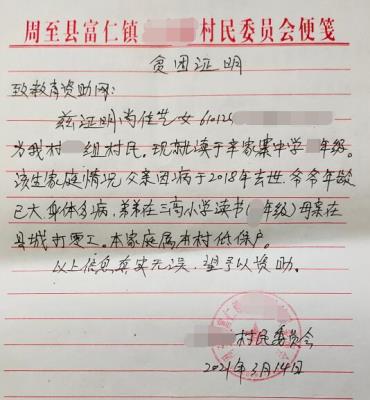 周至县富仁镇 村民委员会便笺
贫困证明
致教育资助网：
兹证明尚佳艺女610125
为我村 组村民。现就读于辛家寨中学 年级。
该生家庭情况父亲因病于2018年去世，爷爷年龄
已大，身体多病，弟弟在三高小学读书（ 年级）母亲在
县城打零工。本家庭属本村低保户。
以上信息真实无误，望予以资助。
村民委员会
2021年3月14日